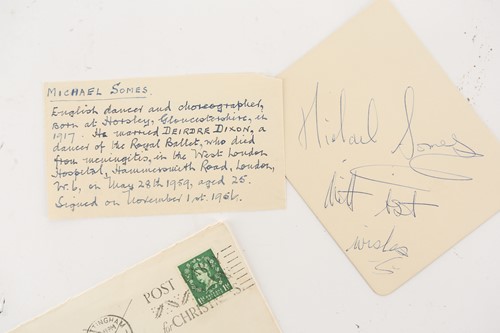 MICHAEL SOMES.
English dancer and choreographer,
born at Horsley, Gloucestershire, in
1917. He married DEIRDRE DIXON, a
dancer of the Royal Ballet, who died
from meningites, in the West London
Hospital, Hammersmith Road, London,
W.6, on May 28th 1959, aged 25.
Signed on November 1st. 1961.
Michael Somes
with best
wishes
POST
CHRIST
INGHAM